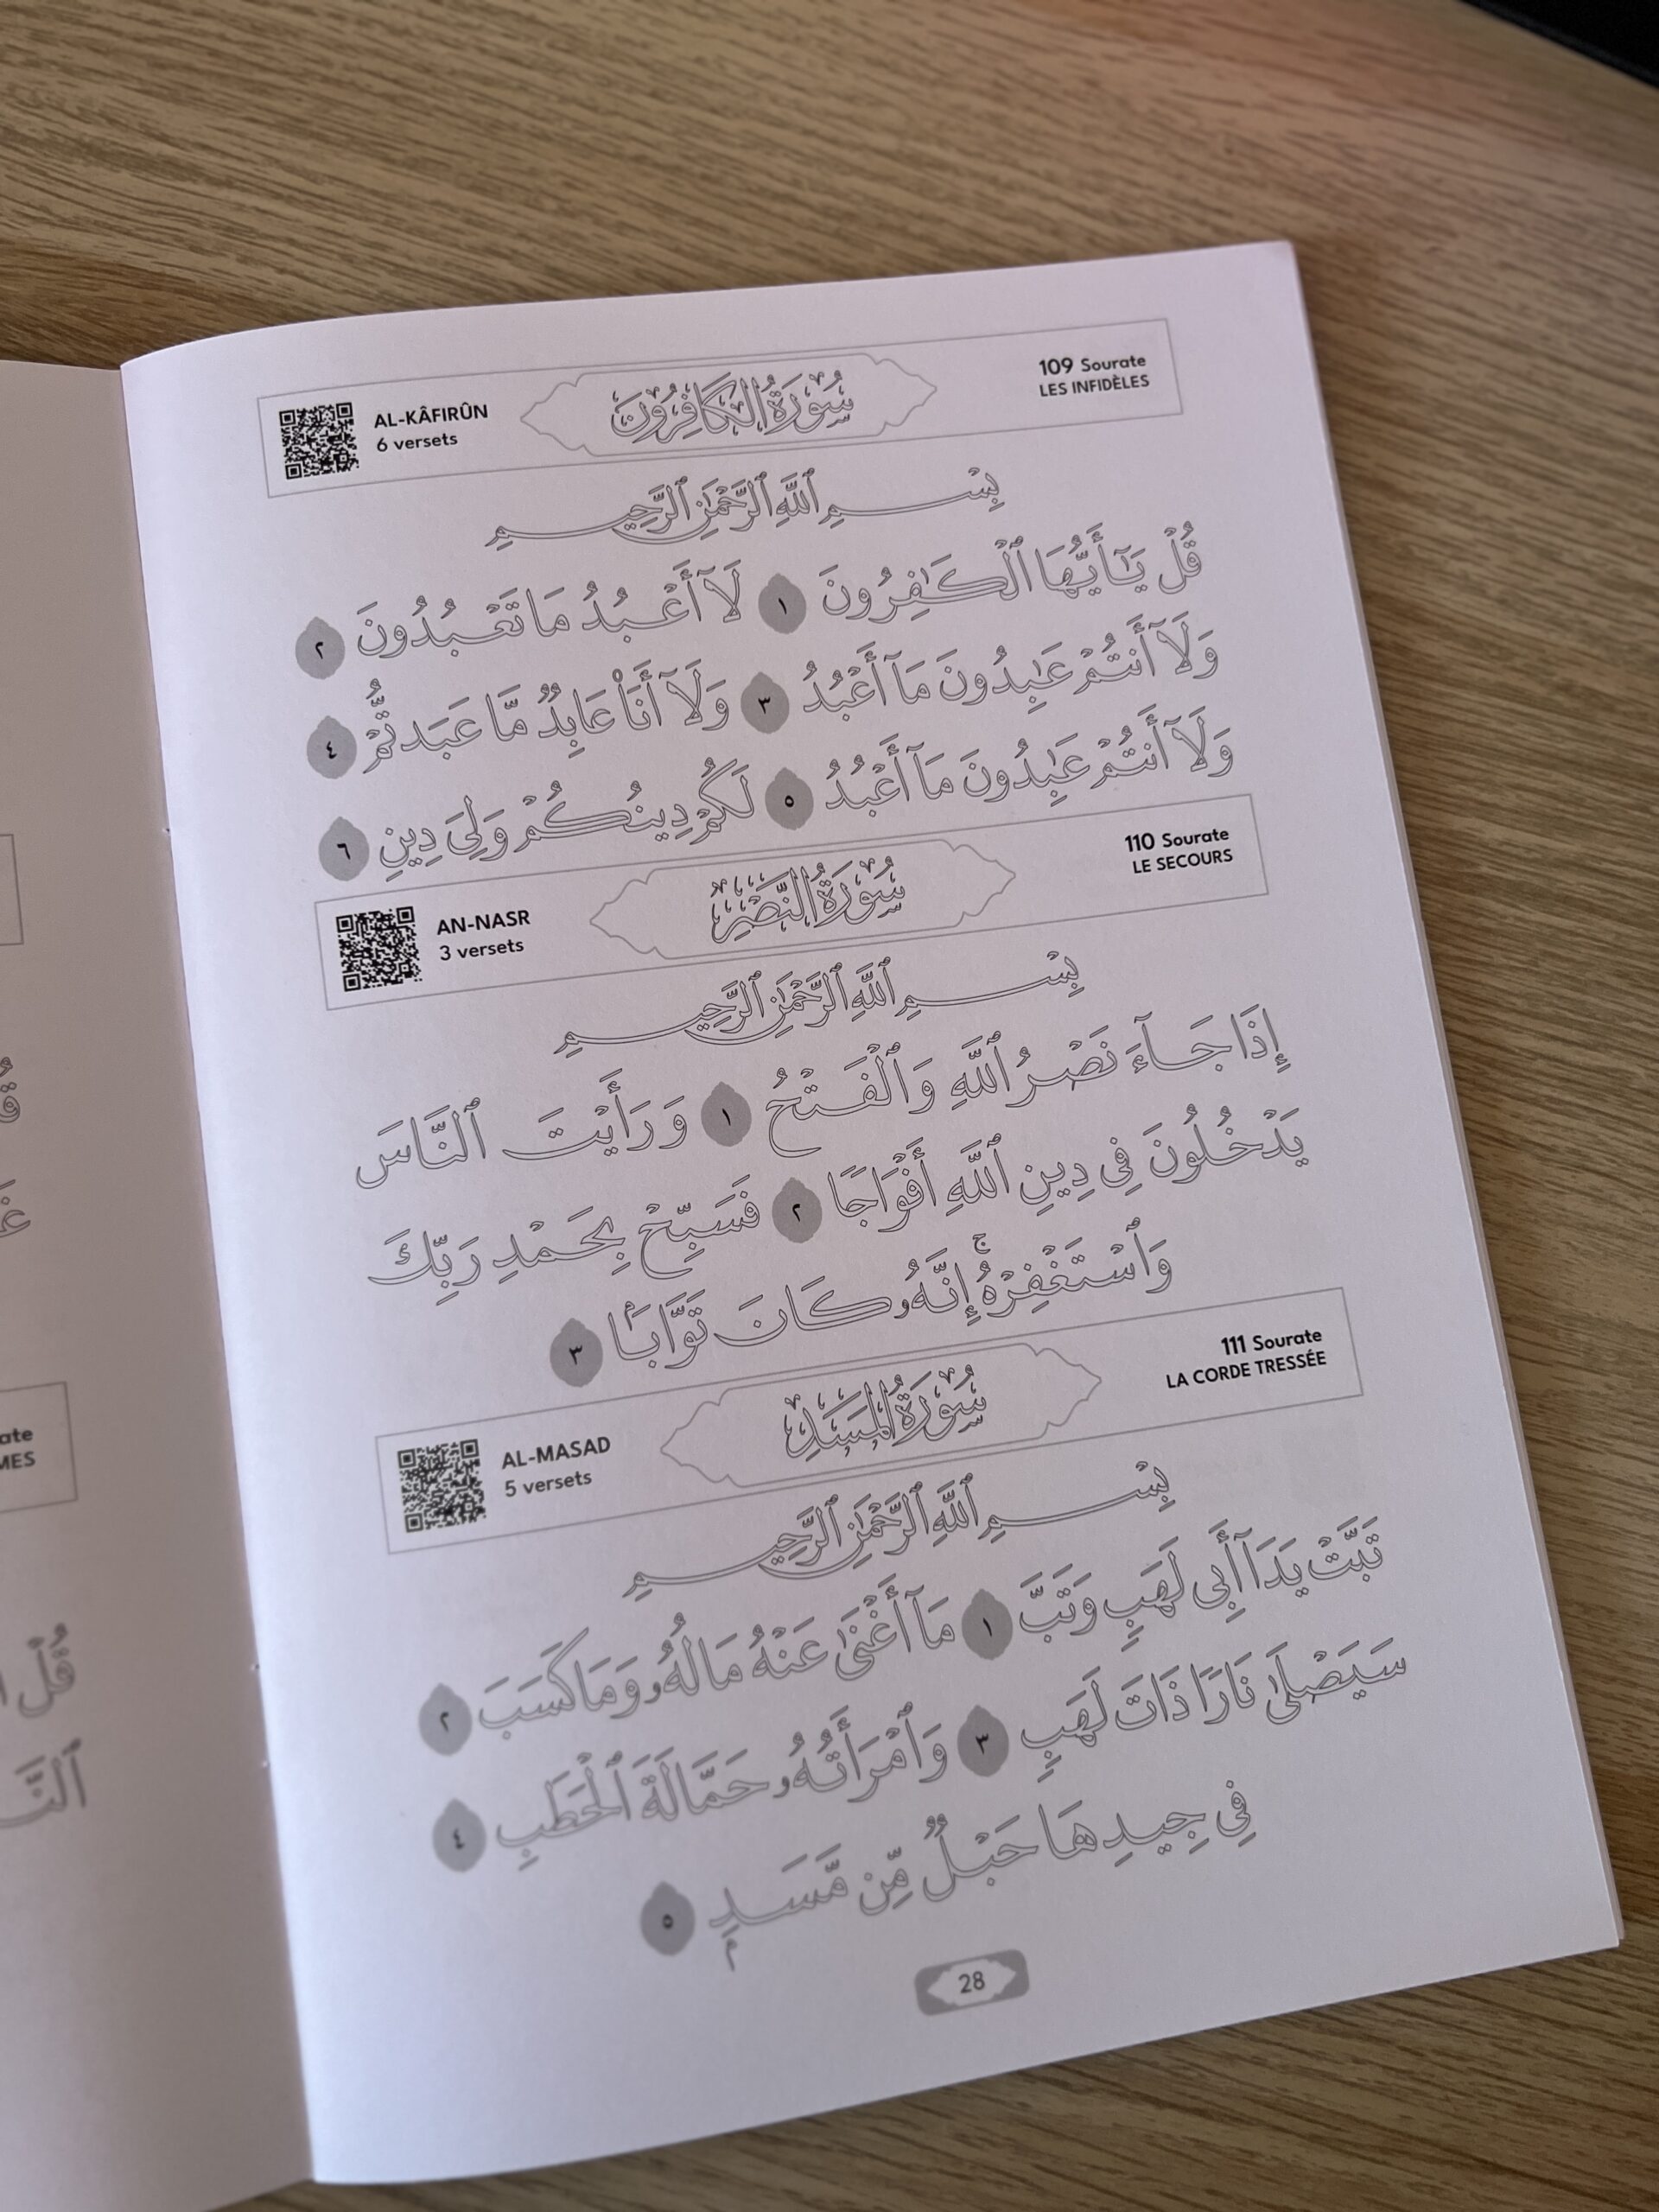 109 Sourate
LES INFIDÈLES
سُورَةُ الكَافِرُونَ
AL-KÂFIRÛN
6 versets
بِسْمِ ٱللَّهِ ٱلرَّحْمَٰنِ ٱلرَّحِيمِ
قُلْ يَٰٓأَيُّهَا ٱلْكَٰفِرُونَ ١ لَآ أَعْبُدُ مَا تَعْبُدُونَ ٢
وَلَآ أَنتُمْ عَٰبِدُونَ مَآ أَعْبُدُ ٣ وَلَآ أَنَا۠ عَابِدٌ مَّا عَبَدتُّمْ ٤
وَلَآ أَنتُمْ عَٰبِدُونَ مَآ أَعْبُدُ ٥ لَكُمْ دِينُكُمْ وَلِىَ دِينِ ٦
110 Sourate
LE SECOURS
سُورَةُ النَّصْرِ
AN-NASR
3 versets
بِسْمِ ٱللَّهِ ٱلرَّحْمَٰنِ ٱلرَّحِيمِ
إِذَا جَآءَ نَصْرُ ٱللَّهِ وَٱلْفَتْحُ ١ وَرَأَيْتَ ٱلنَّاسَ
يَدْخُلُونَ فِى دِينِ ٱللَّهِ أَفْوَاجًا ٢ فَسَبِّحْ بِحَمْدِ رَبِّكَ
وَٱسْتَغْفِرْهُ ۚ إِنَّهُۥ كَانَ تَوَّابًۢا ٣
111 Sourate
LA CORDE TRESSÉE
سُورَةُ المَسَدِ
AL-MASAD
5 versets
بِسْمِ ٱللَّهِ ٱلرَّحْمَٰنِ ٱلرَّحِيمِ
تَبَّتْ يَدَآ أَبِى لَهَبٍ وَتَبَّ ١ مَآ أَغْنَىٰ عَنْهُ مَالُهُۥ وَمَا كَسَبَ ٢
سَيَصْلَىٰ نَارًا ذَاتَ لَهَبٍ ٣ وَٱمْرَأَتُهُۥ حَمَّالَةَ ٱلْحَطَبِ ٤
فِى جِيدِهَا حَبْلٌ مِّن مَّسَدٍۭ ٥
28
قُلْ